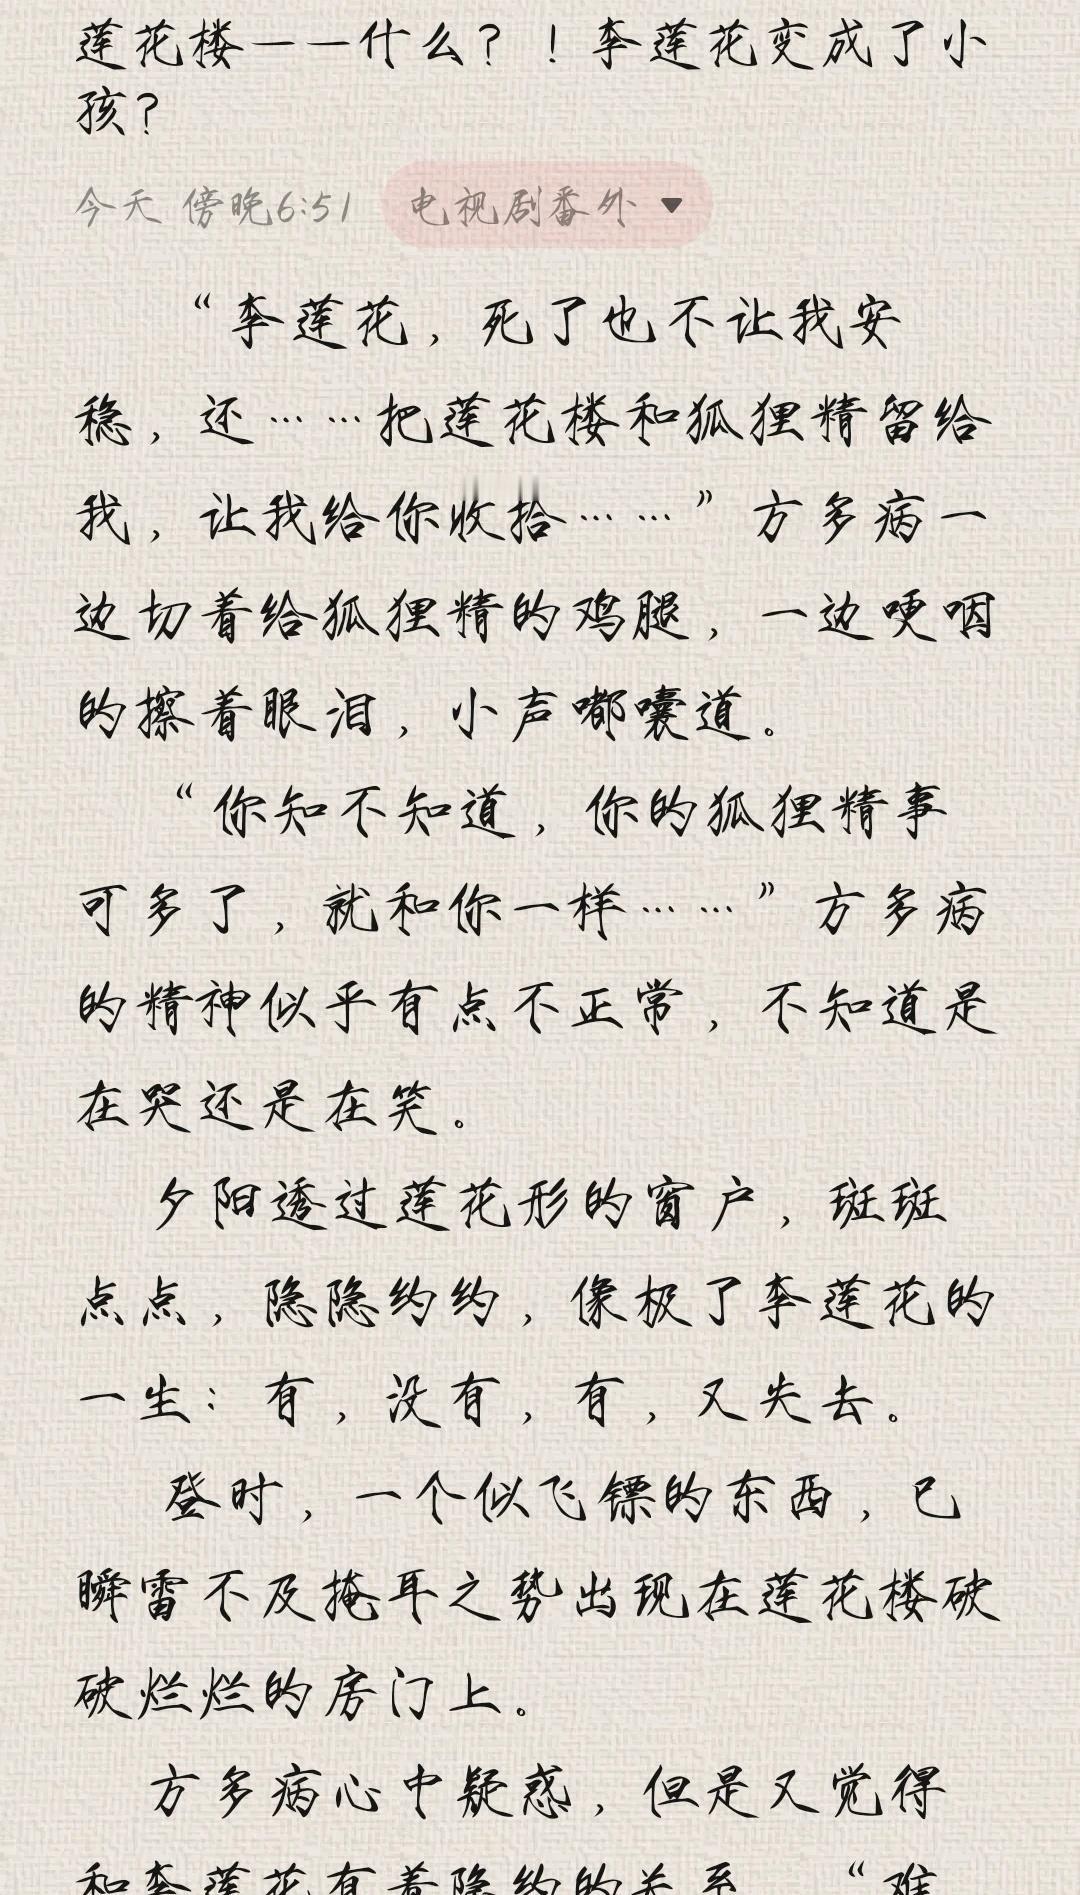 莲花楼——什么？！李莲花变成了小
孩？
今天 傍晚6:51 电视剧番外
“李莲花，死了也不让我安
稳，还……把莲花楼和狐狸精留给
我，让我给你收拾……”方多病一
边切着给狐狸精的鸡腿，一边哽咽
的擦着眼泪，小声嘟囔道。
“你知不知道，你的狐狸精事
可多了，就和你一样……”方多病
的精神似乎有点不正常，不知道是
在哭还是在笑。
夕阳透过莲花形的窗户，斑斑
点点，隐隐约约，像极了李莲花的
一生：有，没有，有，又失去。
登时，一个似飞镖的东西，已
瞬雷不及掩耳之势出现在莲花楼破
破烂烂的房门上。
方多病心中疑惑，但是又觉得
和李莲花有着隐约的关系。“难